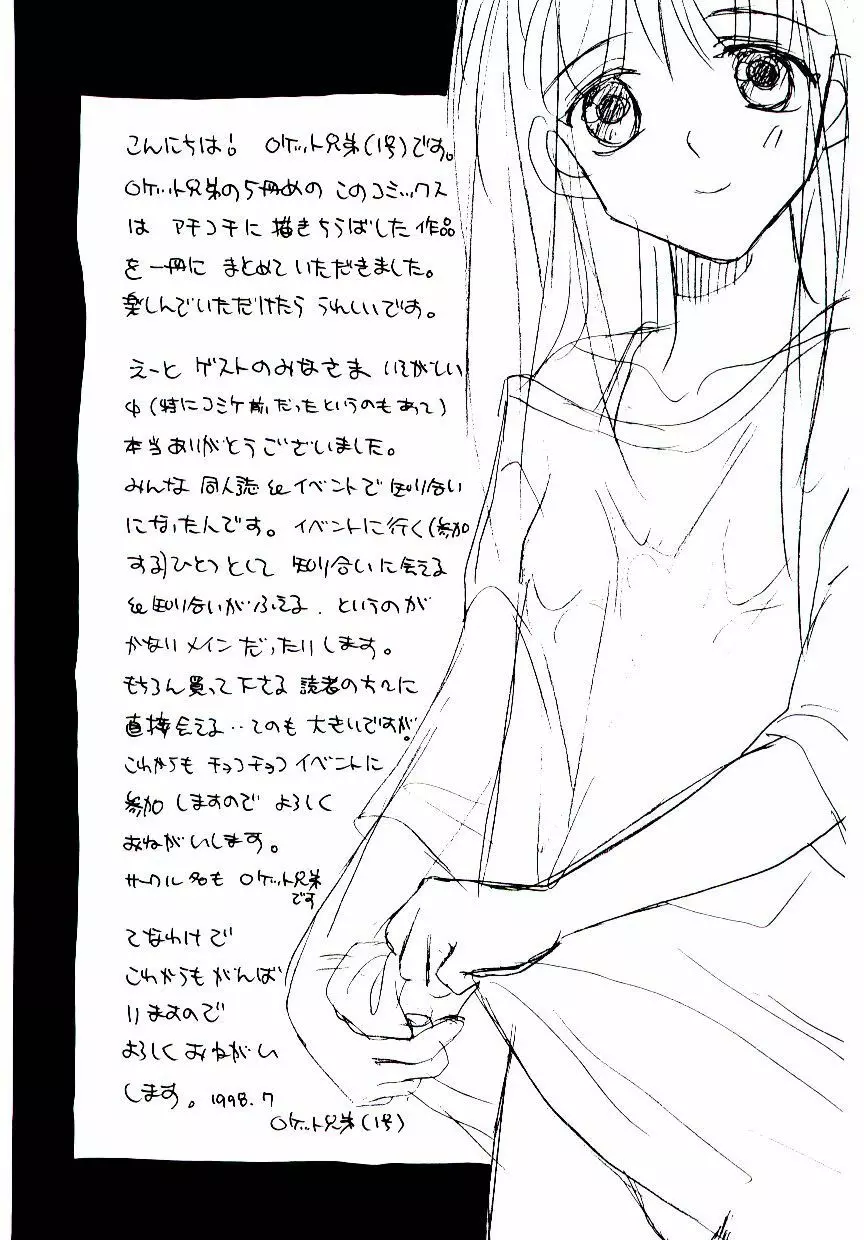 こんにちは! ロケット兄弟(1号)です。
ロケット兄弟の5冊めの このコミックス
は アチコチに 描きちらばした 作品
を一冊に まとめて いただきました。
楽しんでいただけたら うれしいです。
えーと ゲストのみなさま いそがしい
中(特にコミケ前だったというのもあって)
本当ありがとうございました。
みんな 同人誌やイベントで 知り合い
になったんです。イベントに行く(参加
する)ひとつとして 知り合いに会える
や知り合いがふえる、というのが
かなりメインだったりします。
もちろん買って下さる 読者の方々に
直接会える‥てのも 大きいですが。
これからも チョコチョコ イベントに
参加しますので よろしく
おねがいします。
サークル名も ロケット兄弟
です
てなわけで
これからもがんば
りますので
よろしく おねがい
します。 1998.7
ロケット兄弟(1号)